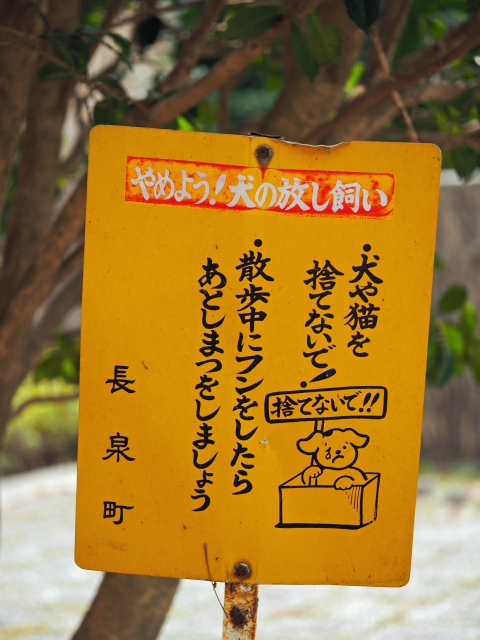 やめよう!犬の放し飼い
・犬や猫を
捨てないで!
捨てないで!!
・散歩中にフンをしたら
あとしまつをしましょう
長泉町